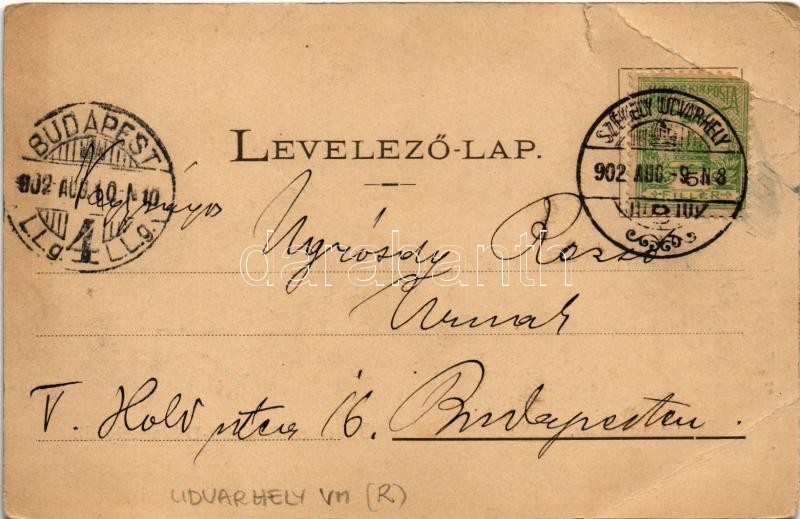 LEVELEZŐ-LAP.
BUDAPEST
902 AUG 10 N 10
4
I.I.g. I.I.g.
MAGYAR KIR. POSTA
5
FILLÉR
SZÉKELY UDVARHELY
902 AUG -9 N 8
Nagyságos
Ugrósdy Rezső
Urnak
V. Hold utcza 16. Budapesten.
darabanth
UDVARHELY VM (R)